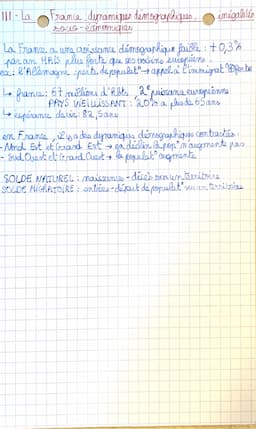 III - La France, dynamiques démographiques, inégalités
socio-économiques
La France a une croissance démographique faible : + 0,3%
par an MAIS plus forte que ses voisins européens.
ex : l'Allemagne perte de populat° → appel à l'immigrat°
↳ france : 67 millions d'Abts, 2e puissance européenne
PAYS VIEILLISSANT : 20% a plus de 65 ans
↳ espérance de vie : 82,5 ans
en France, il y a des dynamiques démographiques contrastés :
- Nord Est et Grand Est → en déclin la pop° n'augmente pas
- Sud Ouest et Grand Ouest → la populat° augmente
SOLDE NATUREL : naissance - décès sur un territoire
SOLDE MIGRATOIRE : entrées - départ de populat° sur un territoire